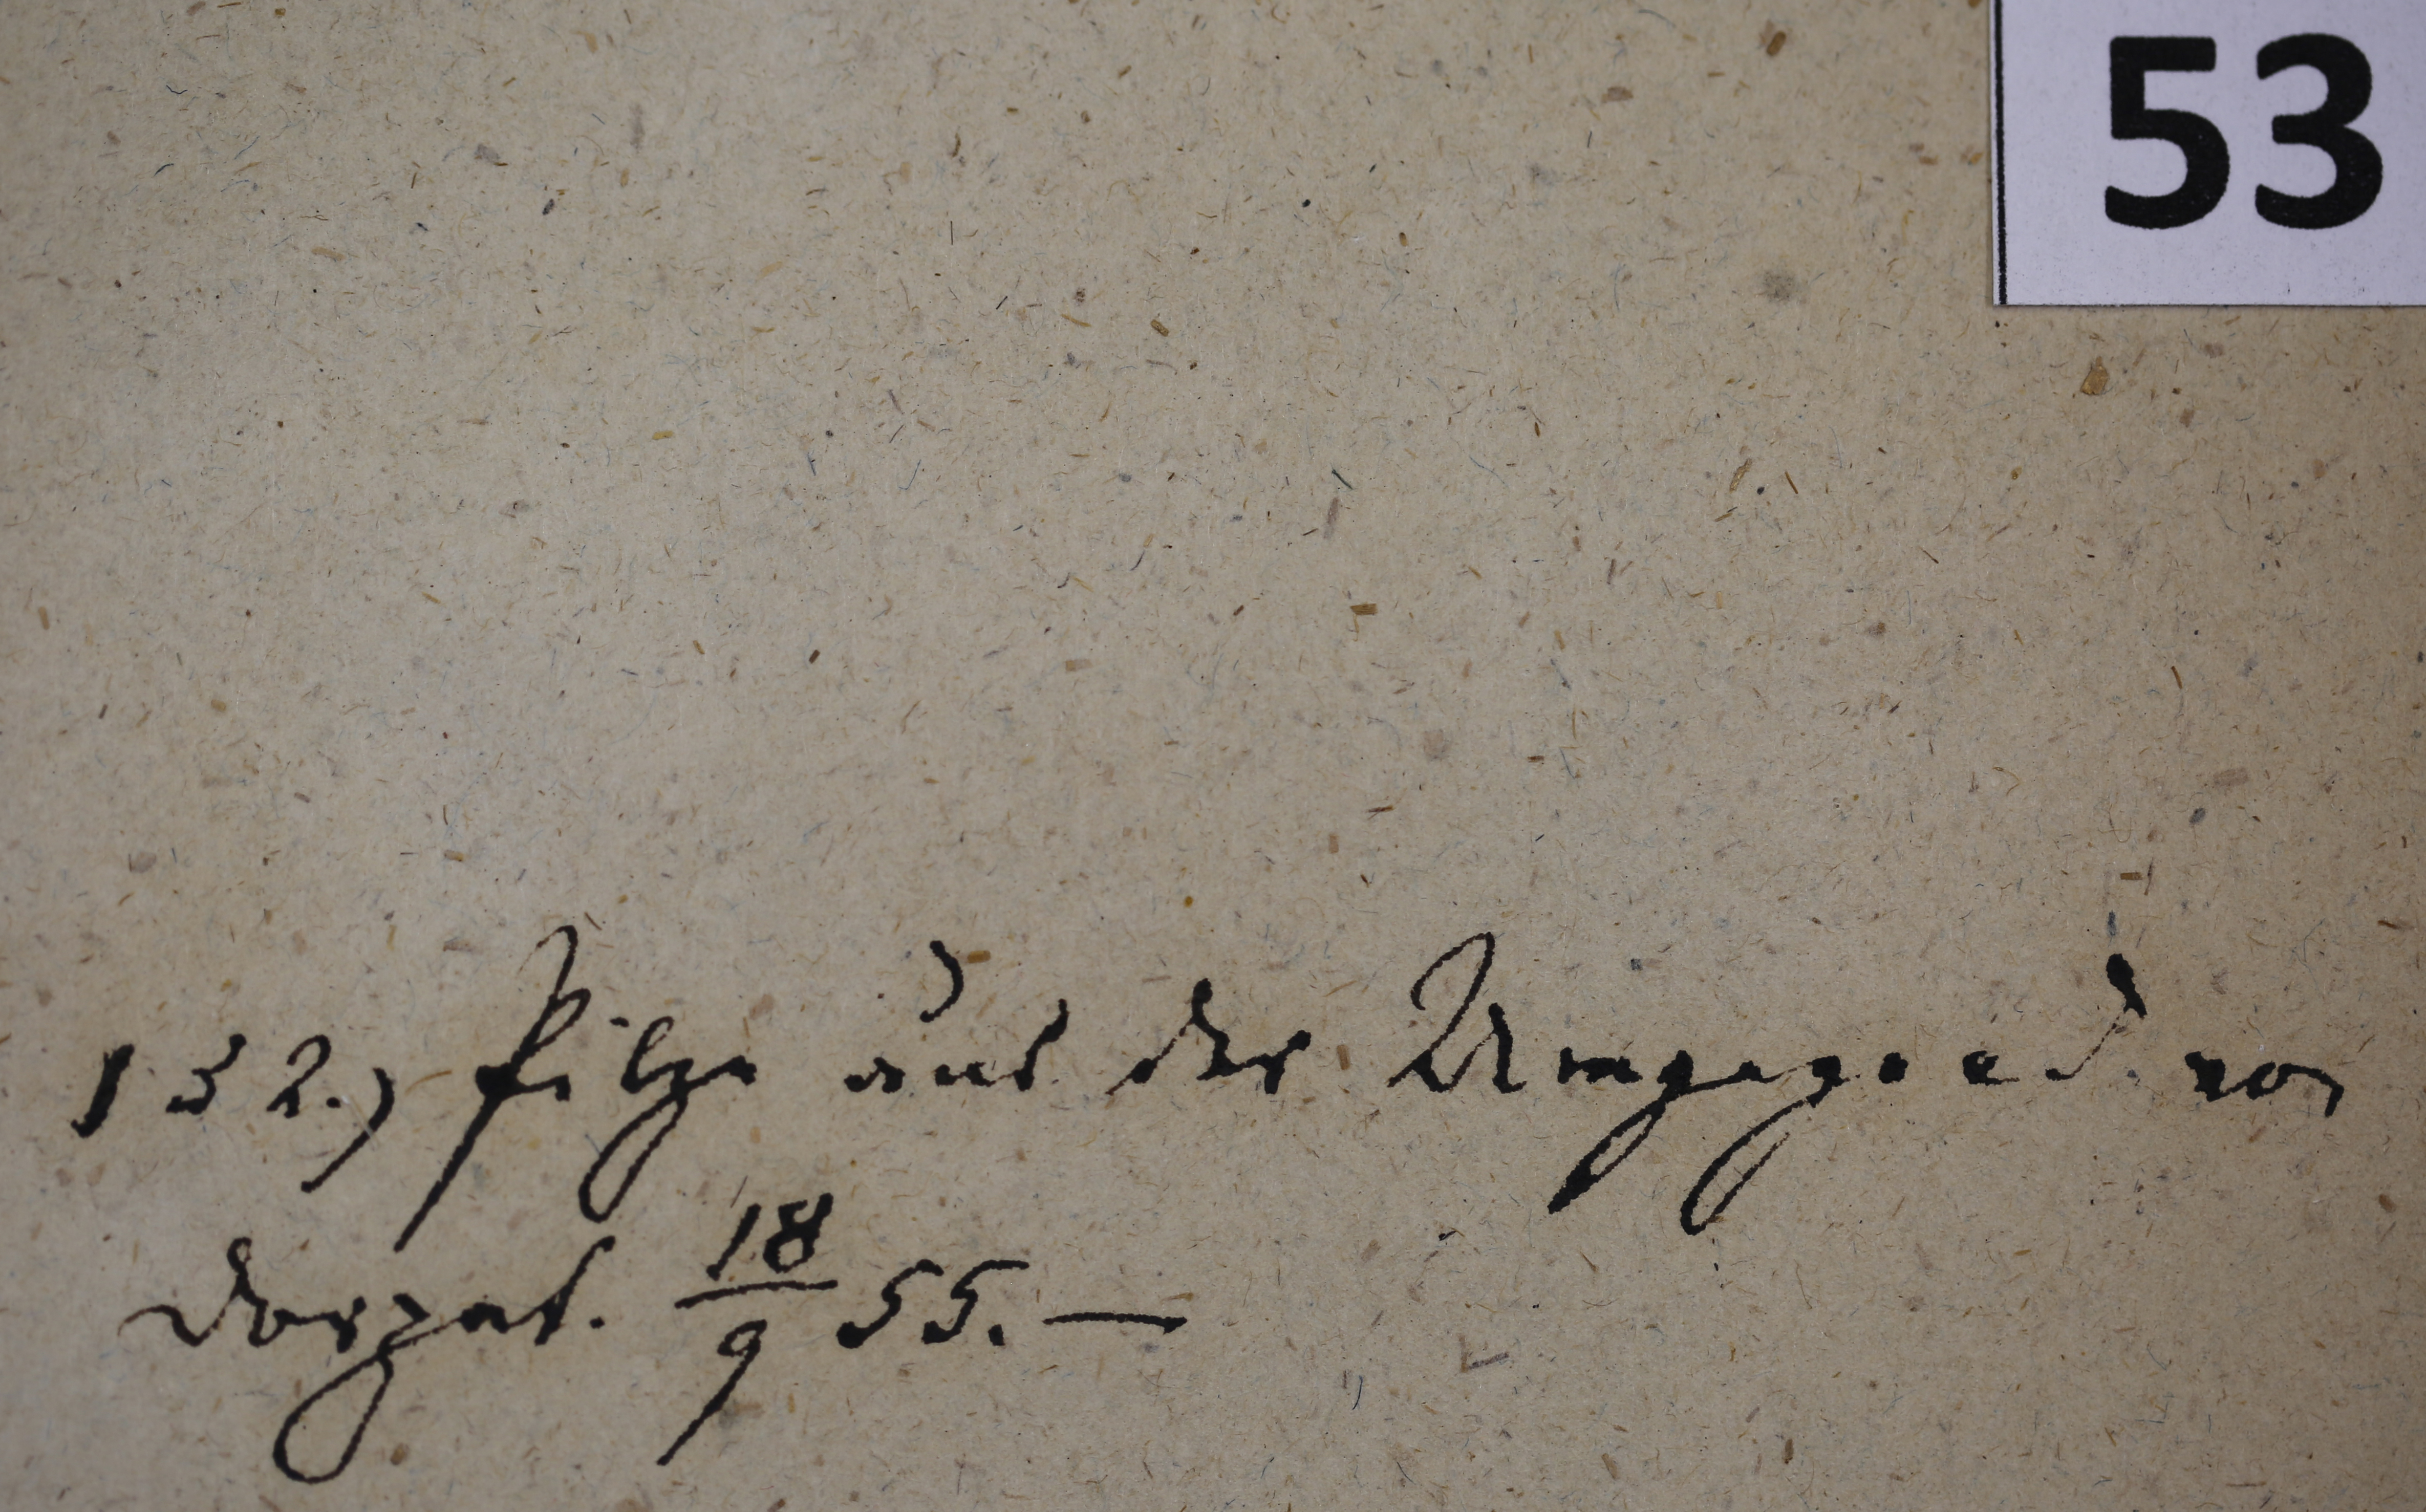 53
132.) Pilze aus der Umgegend von
Dorpat. 18/9 55. —